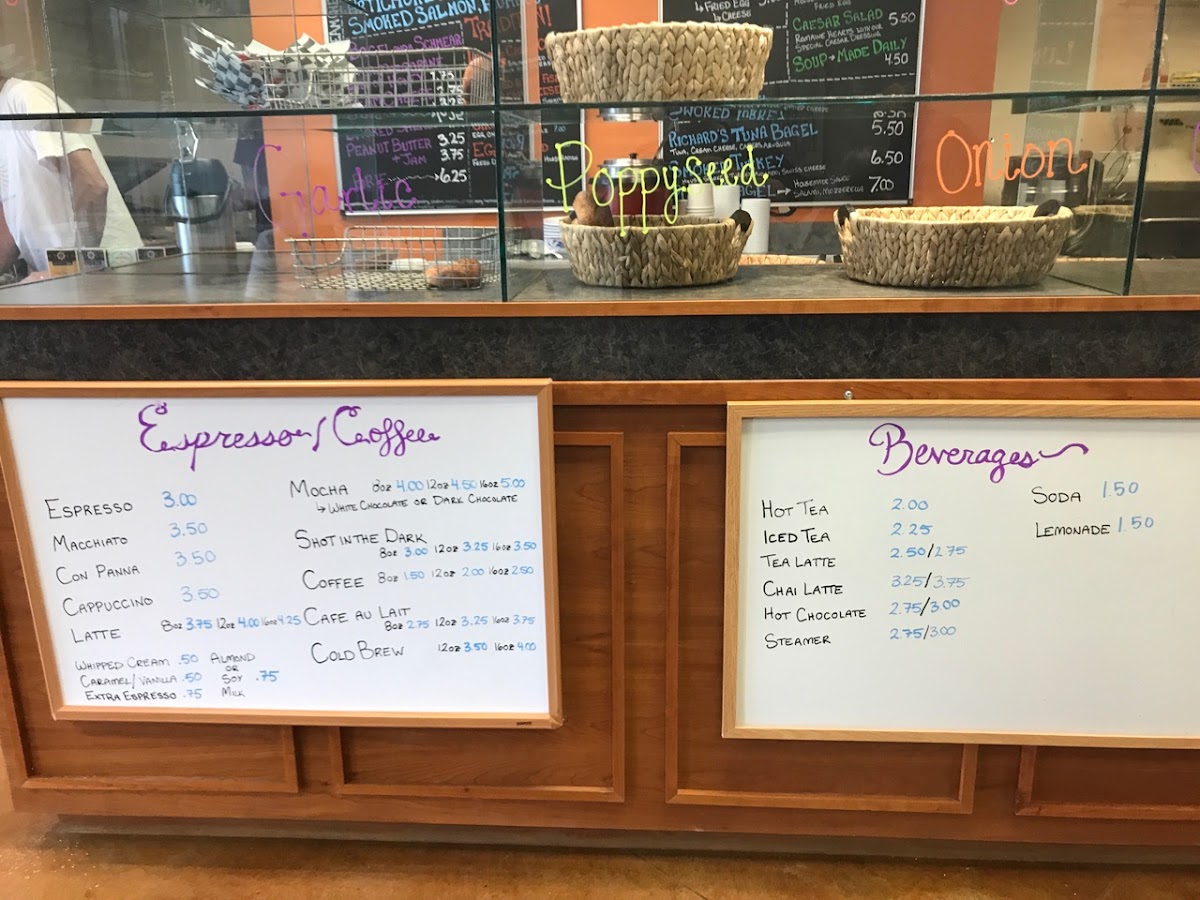 Smoked Salmon,
Tradition!
Bagel and Schmear
1.75
3.25
3.25
Peanut Butter 3.75
+ Jam
6.25
↳ Fried Egg
↳ Cheese
Fried Egg
Caesar Salad 5.50
Romaine Hearts with our
Special Caesar Dressing
Soup → Made Daily
4.50
Smoked Turkey
Richard's Tuna Bagel 5.50
6.50
Housemade Sauce
Salami, Mozzerella 7.00
Garlic
Poppyseed
Onion
Espresso/Coffee
Espresso 3.00
Macchiato 3.50
Con Panna 3.50
Cappuccino 3.50
Latte 8oz 3.75 12oz 4.00 16oz 4.25
Whipped Cream .50
Caramel/Vanilla .50
Extra Espresso .75
Almond
or
Soy .75
Milk
Mocha 8oz 4.00 12oz 4.50 16oz 5.00
↳ White Chocolate or Dark Chocolate
Shot in the Dark
8oz 3.00 12oz 3.25 16oz 3.50
Coffee 8oz 1.50 12oz 2.00 16oz 2.50
Cafe au Lait
8oz 2.75 12oz 3.25 16oz 3.75
Cold Brew 12oz 3.50 16oz 4.00
Beverages
Hot Tea 2.00
Iced Tea 2.25
Tea Latte 2.50/2.75
Chai Latte 3.25/3.75
Hot Chocolate 2.75/3.00
Steamer 2.75/3.00
Soda 1.50
Lemonade 1.50